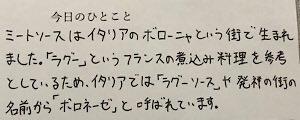 今日のひとこと
ミートソースはイタリアのボローニャという街で生まれ
ました。「ラグー」というフランスの煮込み料理を参考
としているため、イタリアでは「ラグーソース」や発祥の街の
名前から「ボロネーゼ」と呼ばれています。